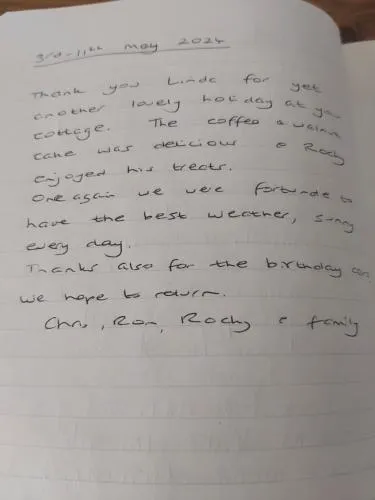 3rd-11th May 2024
Thank you Linda for yet
another lovely holiday at your
cottage. The coffee & walnut
cake was delicious & Rocky
enjoyed his treats.
One again we were fortunate to
have the best weather, sunny
every day.
Thanks also for the birthday
we hope to return.
Chris, Ron, Rocky & family